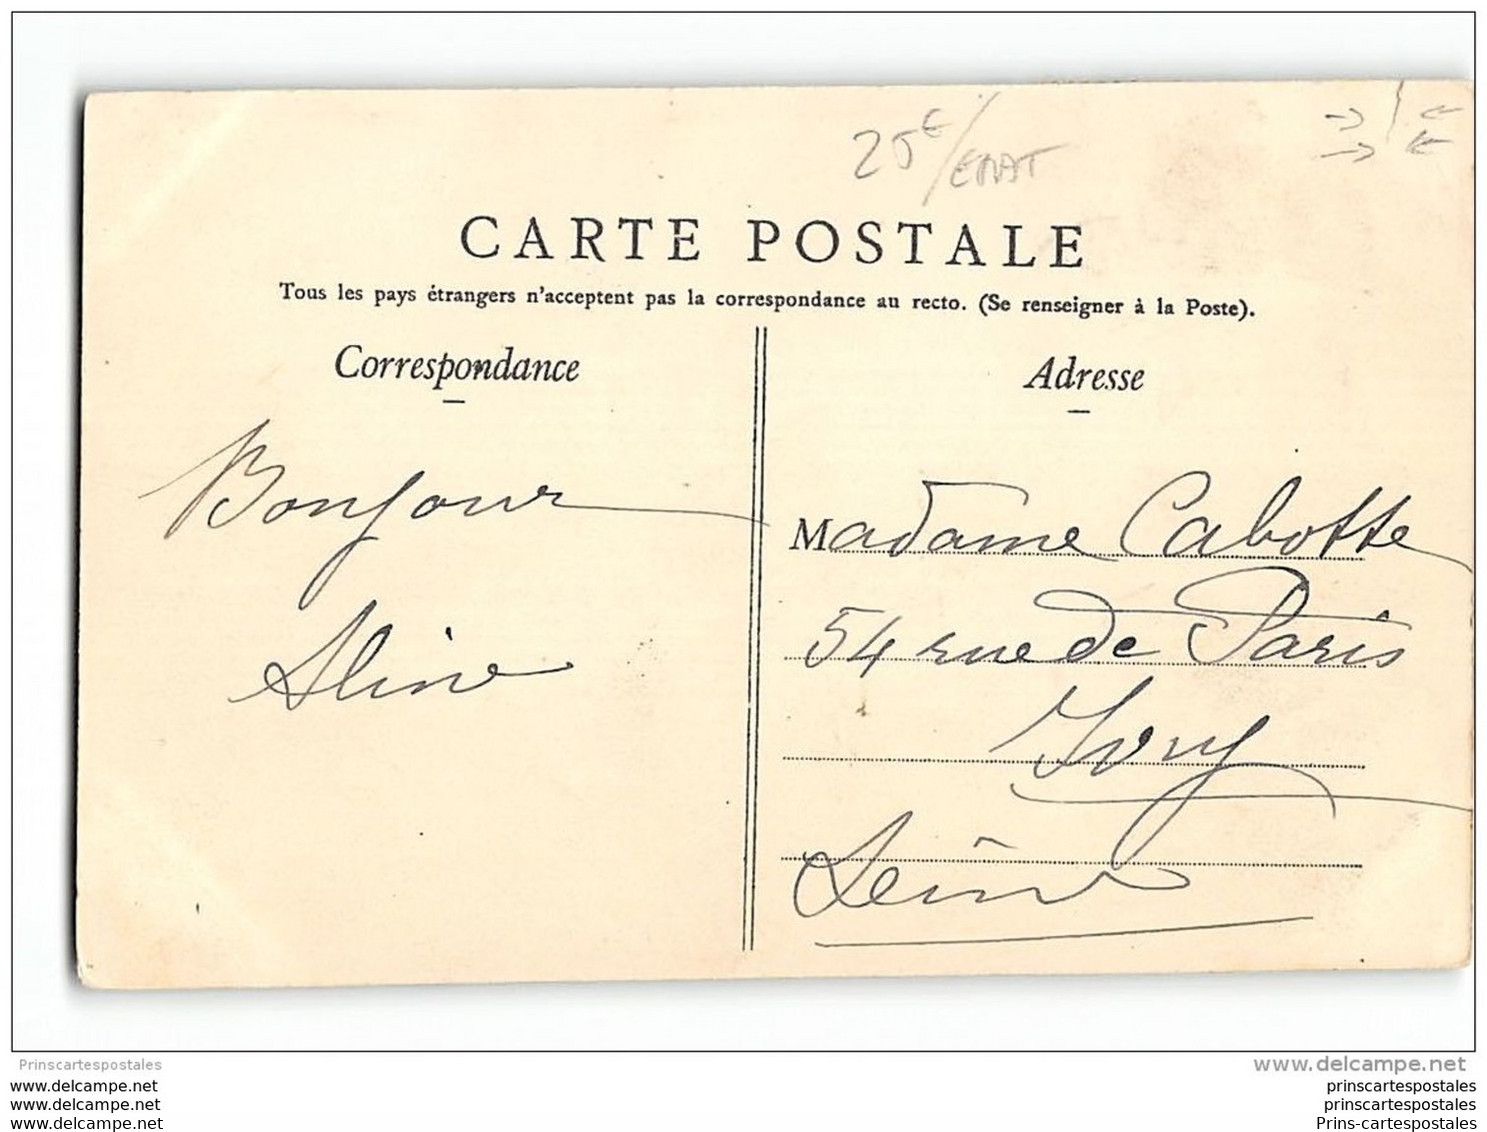 25€/ETAT
CARTE POSTALE
Tous les pays étrangers n'acceptent pas la correspondance au recto. (Se renseigner à la Poste).
Correspondance
Adresse
Bonjour
Aline
Madame Cabotte
54 rue de Paris
Ivry
Seine
Prinscartespostales
www.delcampe.net
www.delcampe.net
www.delcampe.net
www.delcampe.net
prinscartespostales
prinscartespostales
Prins-cartespostales